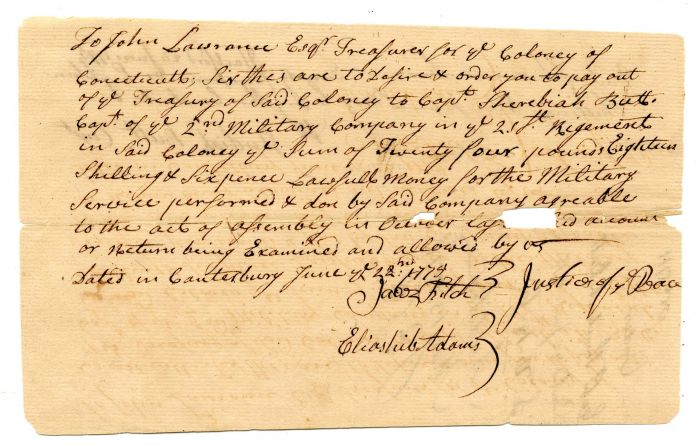 To John Lawrance Esqr. Treasurer for ye Coloney of
Conecticutt; Sir thes are to Desire & order you to pay out
of ye Treasury of Said Coloney to Capt. Sherebiah Butt
Capt. of ye 2nd Military Company in ye 21st. Rigement
in Said Coloney ye Sum of Twenty four pounds Eighteen
Shilling & Sixpence Lawfull Money for the Military
Service performed & don by Said Company agreable
to the act of assembly in October
or Return being Examined and allowed by us
Dated in Canterbury June ye 1775
Jabez Fitch Justices of ye Peace
Eliashib Adams